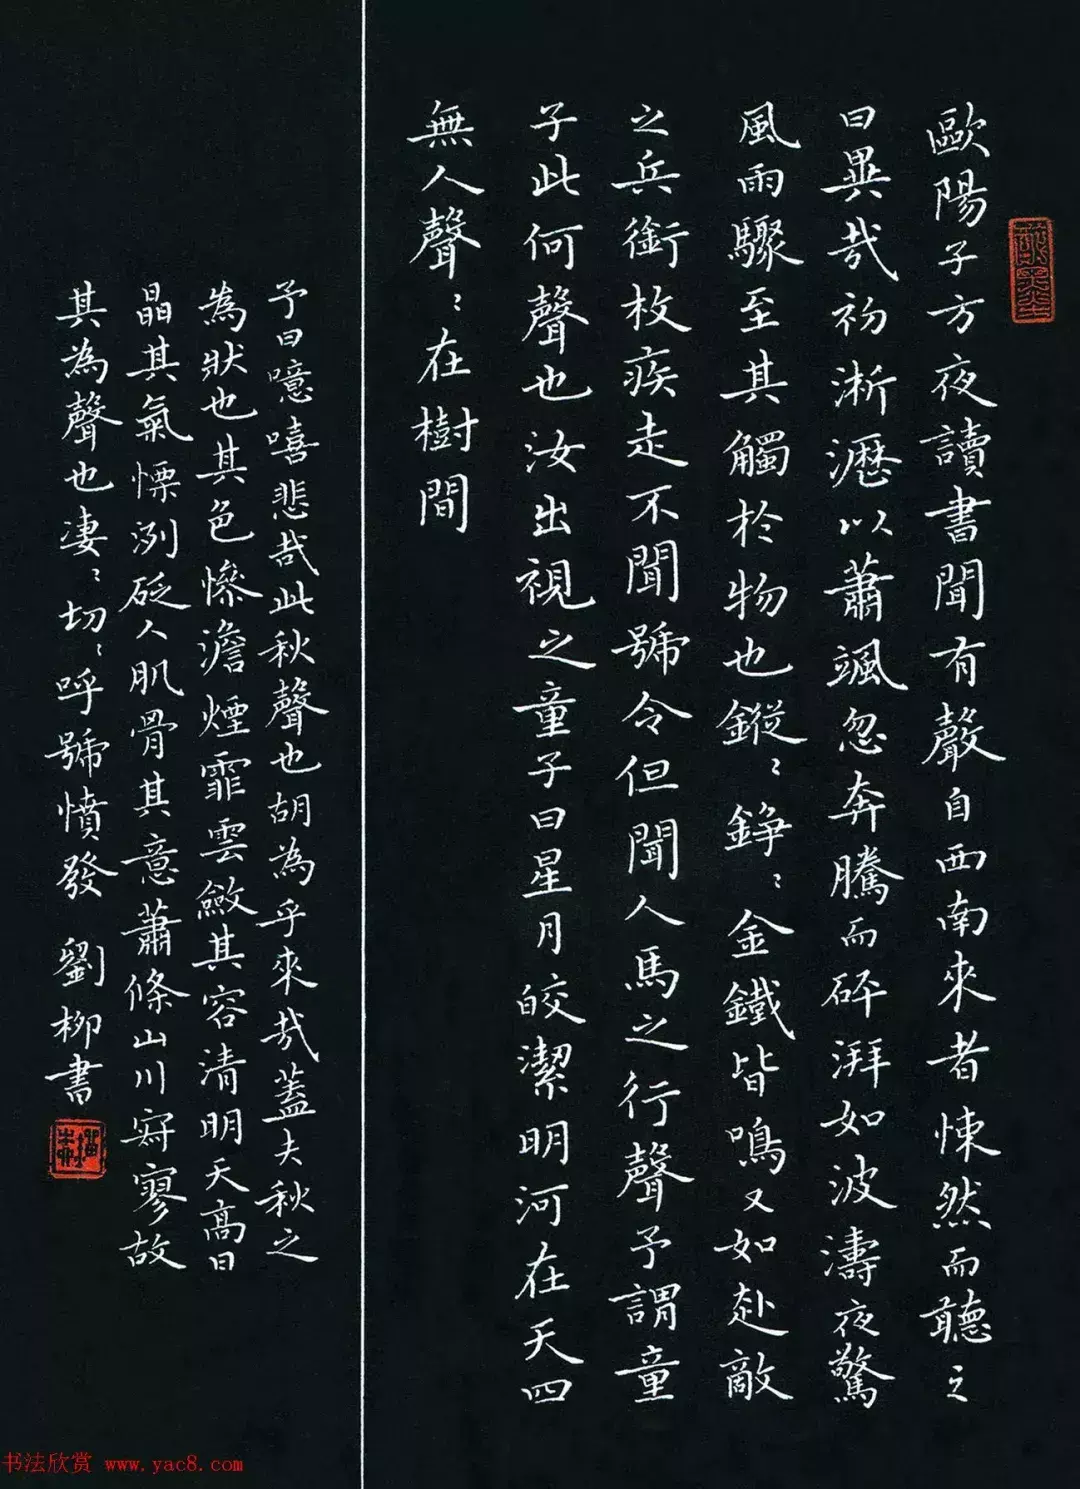 歐陽子方夜讀書聞有聲自西南來者悚然而聽之
曰異哉初淅瀝以蕭颯忽奔騰而砰湃如波濤夜驚
風雨驟至其觸於物也鏦〻錚〻金鐵皆鳴又如赴敵
之兵銜枚疾走不聞號令但聞人馬之行聲予謂童
子此何聲也汝出視之童子曰星月皎潔明河在天四
無人聲〻在樹間
予曰噫嘻悲哉此秋聲也胡為乎來哉蓋夫秋之
為狀也其色慘澹煙霏雲斂其容清明天高日
晶其氣慄冽砭人肌骨其意蕭條山川寂寥故
其為聲也凄〻切〻呼號憤發 劉柳書
书法欣赏 www.yac8.com